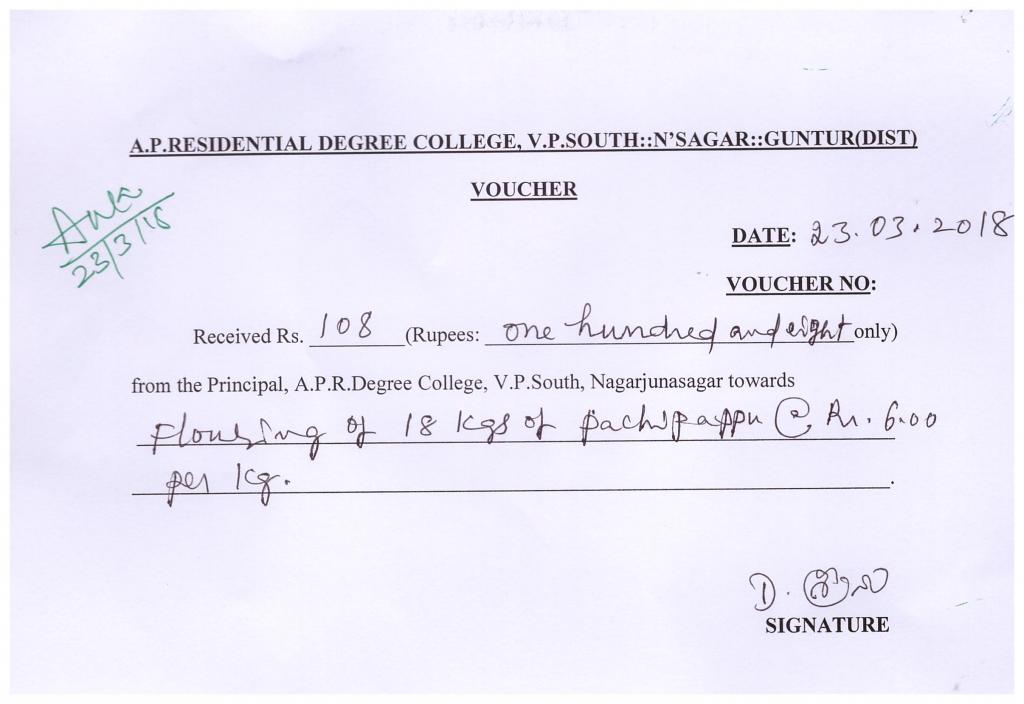 A.P.RESIDENTIAL DEGREE COLLEGE, V.P.SOUTH::N'SAGAR::GUNTUR(DIST)
VOUCHER
23/3/18
DATE: 23.03.2018
VOUCHER NO:
Received Rs. 108 (Rupees: one hundred and eight only)
from the Principal, A.P.R.Degree College, V.P.South, Nagarjunasagar towards
Flouring of 18 kgs of pachipappu @ Rs. 6.00
per kg.
D.
SIGNATURE